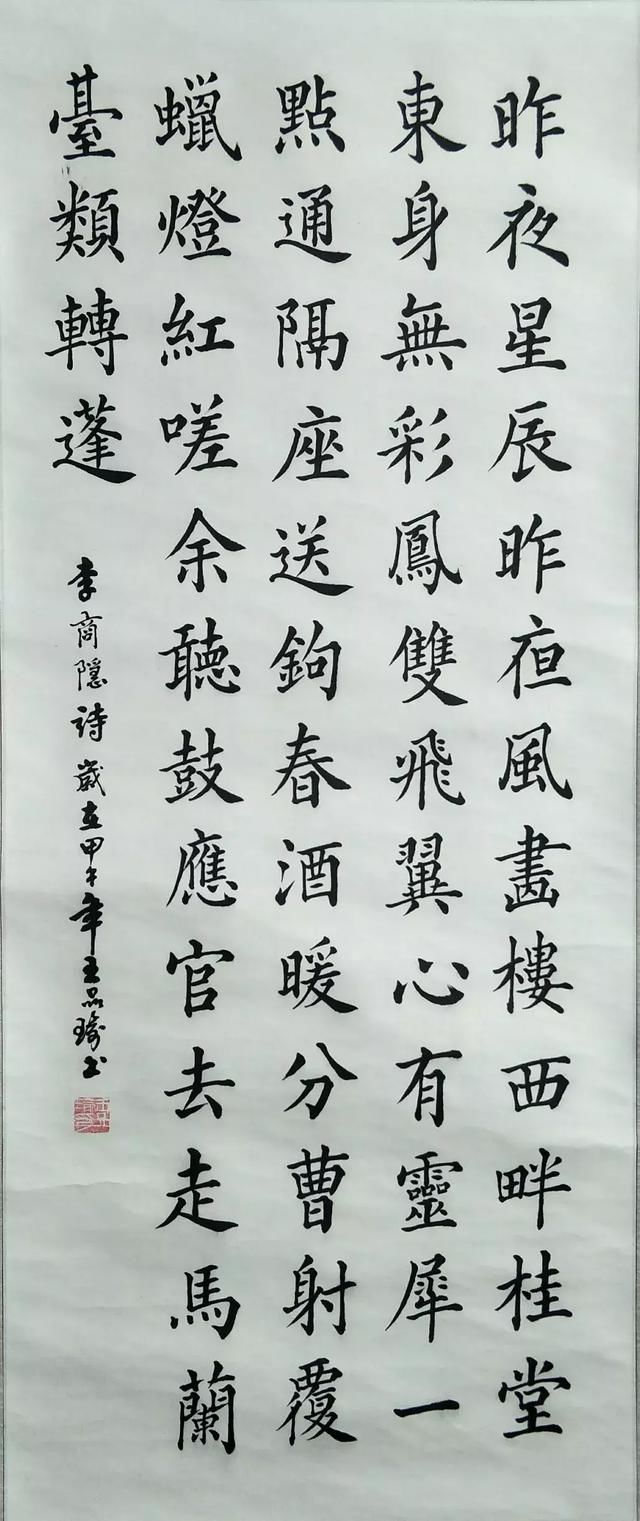 昨夜星辰昨夜風畵樓西畔桂堂
東身無彩鳳雙飛翼心有靈犀一
點通隔座送鉤春酒暖分曹射覆
蠟燈紅嗟余聽鼓應官去走馬蘭
臺類轉蓬
李商隱詩歲在甲午年王品琦书